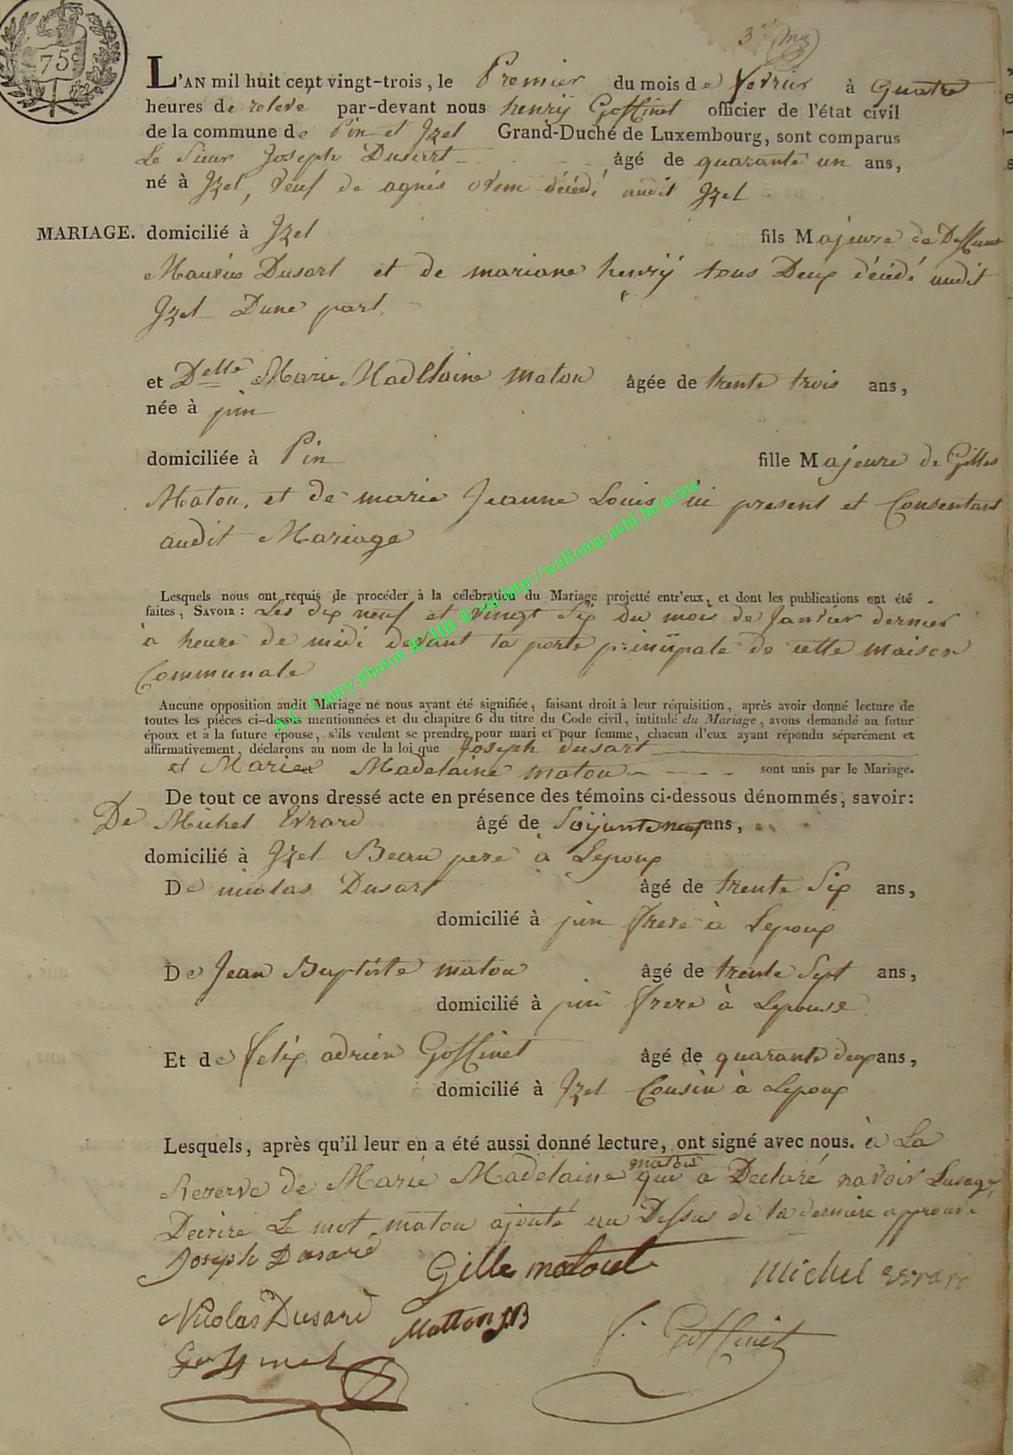 75c
3e
L'AN mil huit cent vingt-trois, le Premier du mois de fevrier à quatre
heures de relevé par-devant nous henrÿ Goffinet officier de l'état civil
de la commune de Pin et Izel Grand-Duché de Luxembourg, sont comparus
Le Sieur Joseph Dusart âgé de quarante un ans,
né à Izel, veuf de agnés décédé audit Izel
MARIAGE. domicilié à Izel fils Majeure de Deffunt
Dusart et de mariane henrÿ tous Deux décédé audit
Izel Dune part.
et Delle Marie Madelaine maton âgée de trente trois ans,
née à pin
domiciliée à Pin fille Majeure de Gilles
Maton, et de marie Jeanne Louis ici present et Consentant
audit Mariage
Lesquels nous ont requis de procéder à la célébration du Mariage projetté entr'eux, et dont les publications ont été
faites, SAVOIR : Les dix neuf et vingt Six du mois de Janvier dernier
à heure de midi devant la porte principale de cette maison
Communale
Aucune opposition audit Mariage ne nous ayant été signifiée, faisant droit à leur réquisition, après avoir donné lecture de
toutes les pièces ci-dessus mentionnées et du chapitre 6 du titre du Code civil, intitulé du Mariage, avons demandé au futur
époux et à la future épouse, s'ils veulent se prendre pour mari et pour femme, chacun d'eux ayant répondu séparément et
affirmativement, déclarons au nom de la loi que Joseph dusart
et Marie Madelaine maton sont unis par le Mariage.
De tout ce avons dressé acte en présence des témoins ci-dessous dénommés, savoir:
De Michel Evrard âgé de Soixante neuf ans,
domicilié à Izel Beau pere à Lepoux
De nicolas Dusart âgé de trente Six ans,
domicilié à pin frere à Lepoux
De Jean Baptiste maton âgé de trente Sept ans,
domicilié à pin frere à Lepouse
Et de felix adrien Goffinet âgé de quarante deux ans,
domicilié à Izel Cousin à Lepoux
Lesquels, après qu'il leur en a été aussi donné lecture, ont signé avec nous. à La
Reserve de Marie Madelaine maton qui a Declaré navoir Lusage
Decrire Le mot maton ajouté au Dessus de la derniere approuvé
Joseph Dusard
Gille matout
Michel evrard
Nicolas Dusard
Matton JB
f. Goffinet
Goffinet
A.E. Cluny photos M. PIB ® via http://wallonia-asbl.be/actes